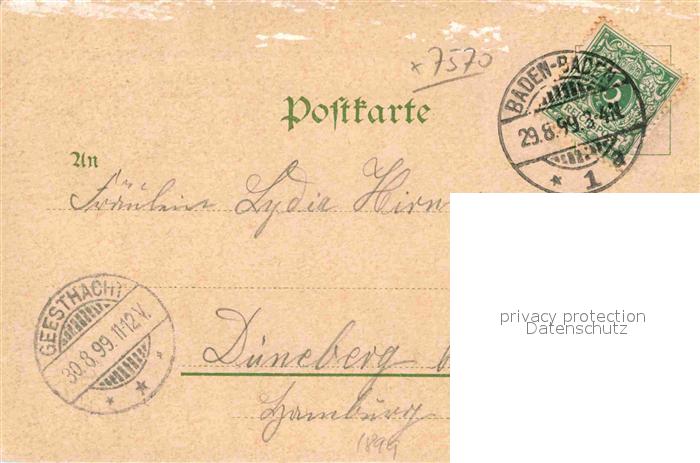 *7570
Postkarte
BADEN-BADEN
29.8.99.3-4N.
* 1 a
An
Fräulein Lydia
privacy protection
Datenschutz
GEESTHACHT
30.8.99.11-12.V.
* *
Düneberg
Hamburg
1899